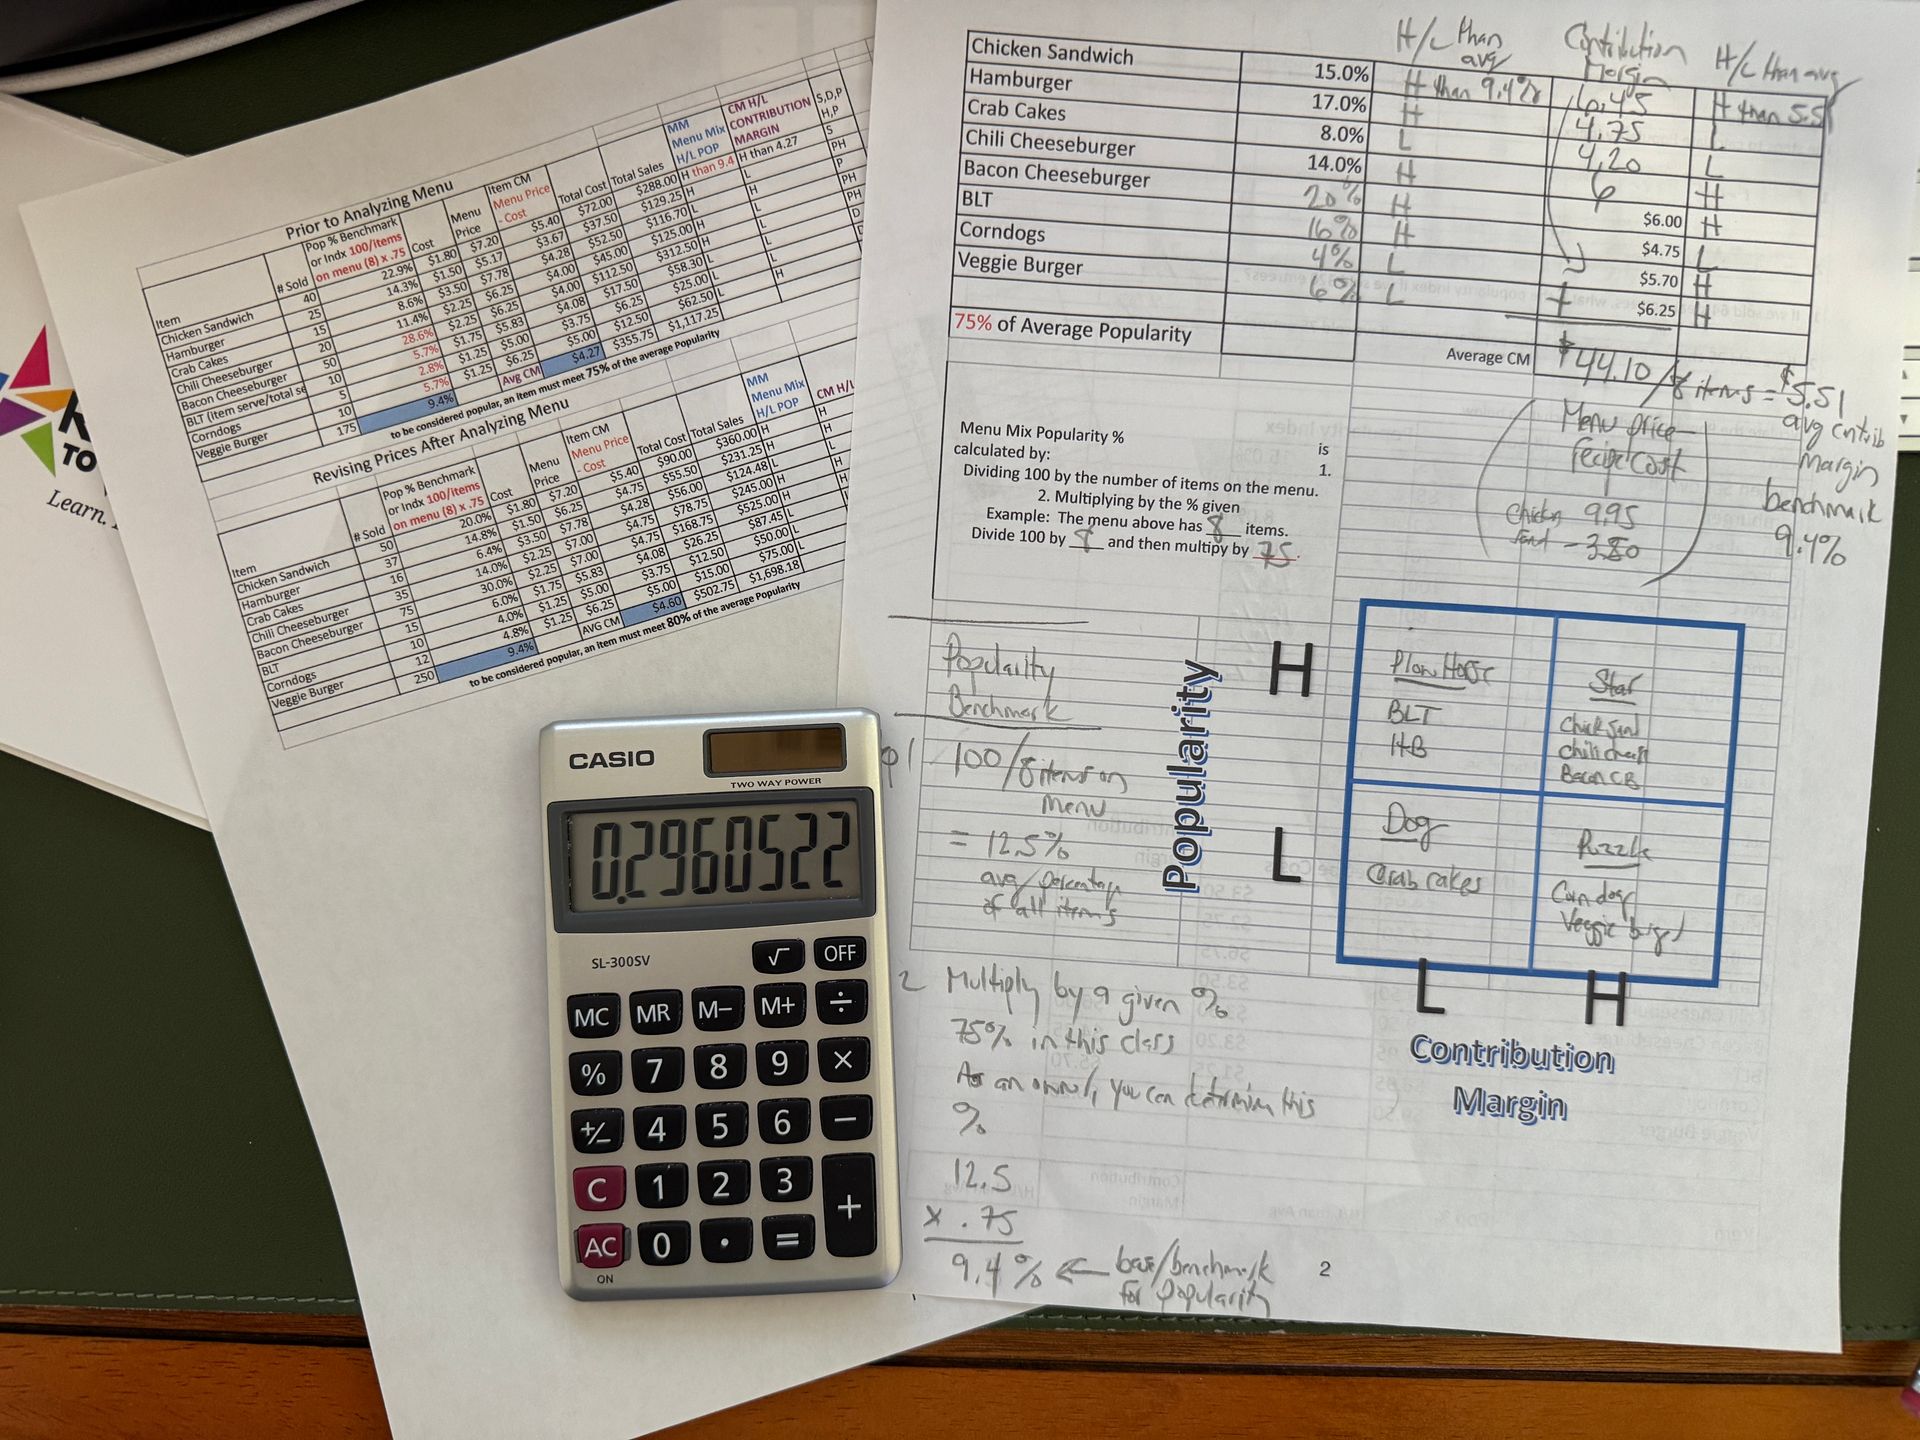 Prior to Analyzing Menu
Item
# Sold
Pop % Benchmark
or Indx 100/items
on menu (8) x .75
Cost
Menu
Price
Item CM
Menu Price
- Cost
Total Cost
Total Sales
MM
Menu Mix
H/L POP
CM H/L
CONTRIBUTION
MARGIN
S,D,P
H,P
Chicken Sandwich 40 22.9% $1.80 $7.20 $5.40 $72.00 $288.00 H than 9.4 H than 4.27 S
Hamburger 25 14.3% $1.50 $5.17 $3.67 $37.50 $129.25 H L PH
Crab Cakes 15 8.6% $3.50 $7.78 $4.28 $52.50 $116.70 L H P
Chili Cheeseburger 20 11.4% $2.25 $6.25 $4.00 $45.00 $125.00 H L PH
Bacon Cheeseburger 50 28.6% $2.25 $6.25 $4.00 $112.50 $312.50 H L PH
BLT (item serve/total se 10 5.7% $1.75 $5.83 $4.08 $17.50 $58.30 L L D
Corndogs 5 2.8% $1.25 $5.00 $3.75 $6.25 $25.00 L L
Veggie Burger 10 5.7% $1.25 $6.25 $5.00 $12.50 $62.50 L H
175 9.4% Avg CM $4.27 $355.75 $1,117.25
to be considered popular, an item must meet 75% of the average Popularity
Revising Prices After Analyzing Menu
Item
# Sold
Pop % Benchmark
or Indx 100/items
on menu (8) x .75
Cost
Menu
Price
Item CM
Menu Price
- Cost
Total Cost
Total Sales
MM
Menu Mix
H/L POP
CM H/L
Chicken Sandwich 50 20.0% $1.80 $7.20 $5.40 $90.00 $360.00 H H
Hamburger 37 14.8% $1.50 $6.25 $4.75 $55.50 $231.25 H H
Crab Cakes 16 6.4% $3.50 $7.78 $4.28 $56.00 $124.48 L L
Chili Cheeseburger 35 14.0% $2.25 $7.00 $4.75 $78.75 $245.00 H H
Bacon Cheeseburger 75 30.0% $2.25 $7.00 $4.75 $168.75 $525.00 H H
BLT 15 6.0% $1.75 $5.83 $4.08 $26.25 $87.45 L L
Corndogs 10 4.0% $1.25 $5.00 $3.75 $12.50 $50.00 L
Veggie Burger 12 4.8% $1.25 $6.25 $5.00 $15.00 $75.00 L
250 9.4% AVG CM $4.60 $502.75 $1,698.18
to be considered popular, an item must meet 80% of the average Popularity
TO
Learn.
H/L than
avg
Contribution
Margin
H/L than avg
Chicken Sandwich 15.0% H than 9.4% 6.45 H than 5.5
Hamburger 17.0% H 4.75 L
Crab Cakes 8.0% L 4.20 L
Chili Cheeseburger 14.0% H 6 H
Bacon Cheeseburger 20% H $6.00 H
BLT 16% H $4.75 L
Corndogs 4% L $5.70 H
Veggie Burger 6% L + $6.25 H
75% of Average Popularity
Average CM
$44.10 / 8 items = $5.51
avg contrib
Margin
benchmark
9.4%
Menu price -
recipe cost
Chicken 9.95
Sand - 3.50
Menu Mix Popularity % is
calculated by: 1.
Dividing 100 by the number of items on the menu.
2. Multiplying by the % given
Example: The menu above has 8 items.
Divide 100 by 8 and then multipy by 75.
Popularity
Benchmark
1 100/8 items on
menu
= 12.5%
avg percentage
of all items
2 Multiply by a given %
75% in this class
As an owner, you can determine this
%
12.5
x .75
9.4% ← base/benchmark
for popularity
Popularity
H
L
Plow Horse
BLT
HB
Star
Chick Sand
chili cheese
Bacon CB
Dog
Crab cakes
Puzzle
Corn dog
Veggie burger
L H
Contribution
Margin
2
CASIO
TWO WAY POWER
0.2960522
SL-300SV
√ OFF
MC MR M− M+ ÷
% 7 8 9 ×
+/− 4 5 6 −
C 1 2 3 +
AC 0 · =
ON